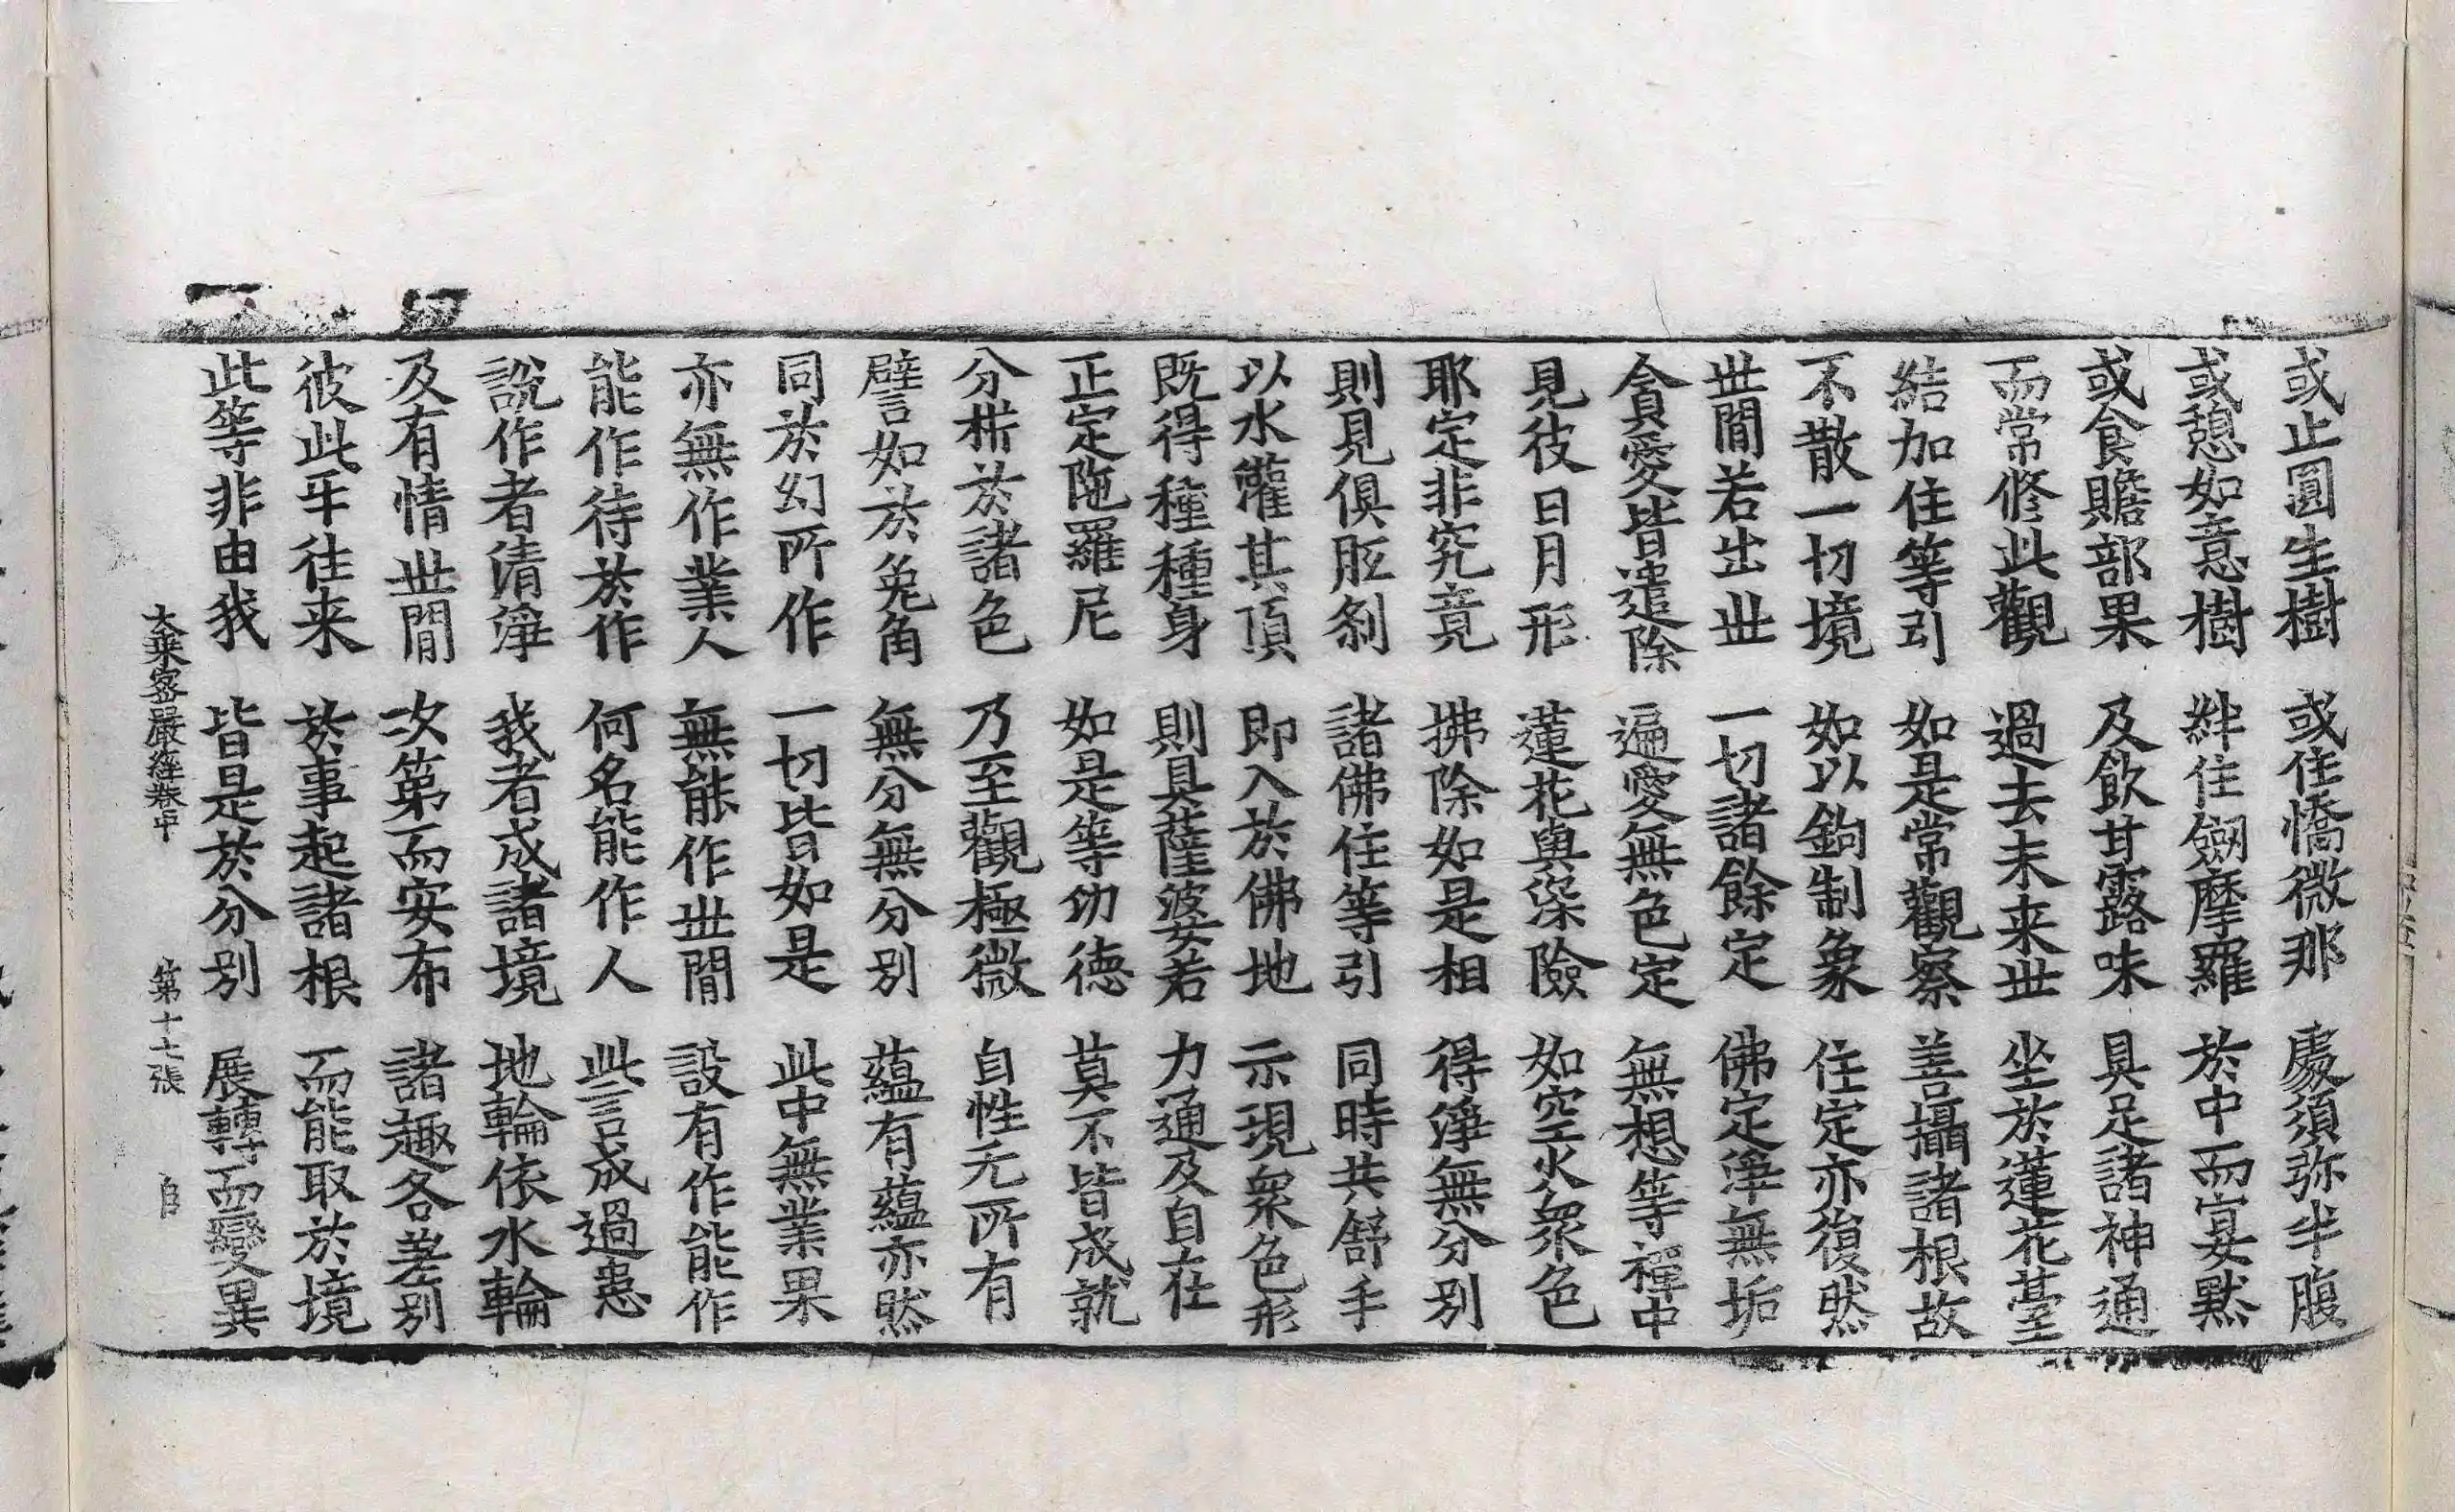 或止圓生樹　或住憍微那　處須弥半腹
或憩如意樹　絆住劔摩羅　於中而宴黙
或食贍部果　及飲甘露味　具足諸神通
而常修此觀　過去未来世　坐於蓮花臺
結加住等引　如是常觀察　善攝諸根故
不散一切境　如以鉤制象　住定亦復然
世間若出世　一切諸餘定　佛定淨無垢
貪愛皆遣除　遍愛無色定　無想等禪中
見彼日月形　蓮花與深險　如空火衆色
耶定非究竟　拂除如是相　得淨無分別
則見俱胝剎　諸佛住等引　同時共舒手
以水灌其頂　即入於佛地　示現衆色形
既得種種身　則具薩婆若　力通及自在
正定陁羅尼　如是等功德　莫不皆成就
分析於諸色　乃至觀極微　自性无所有
譬如於兔角　無分無分別　蘊有蘊亦然
同於幻所作　一切皆如是　此中無業果
亦無作業人　無能作世間　設有作能作
能作待於作　何名能作人　此言成過患
說作者清淨　我者成諸境　地輪依水輪
及有情世間　次第而安布　諸趣各差別
彼此㸦往来　於事起諸根　而能取於境
此等非由我　皆是於分別　展轉而變異
大乘密嚴經卷中　第十七張　自